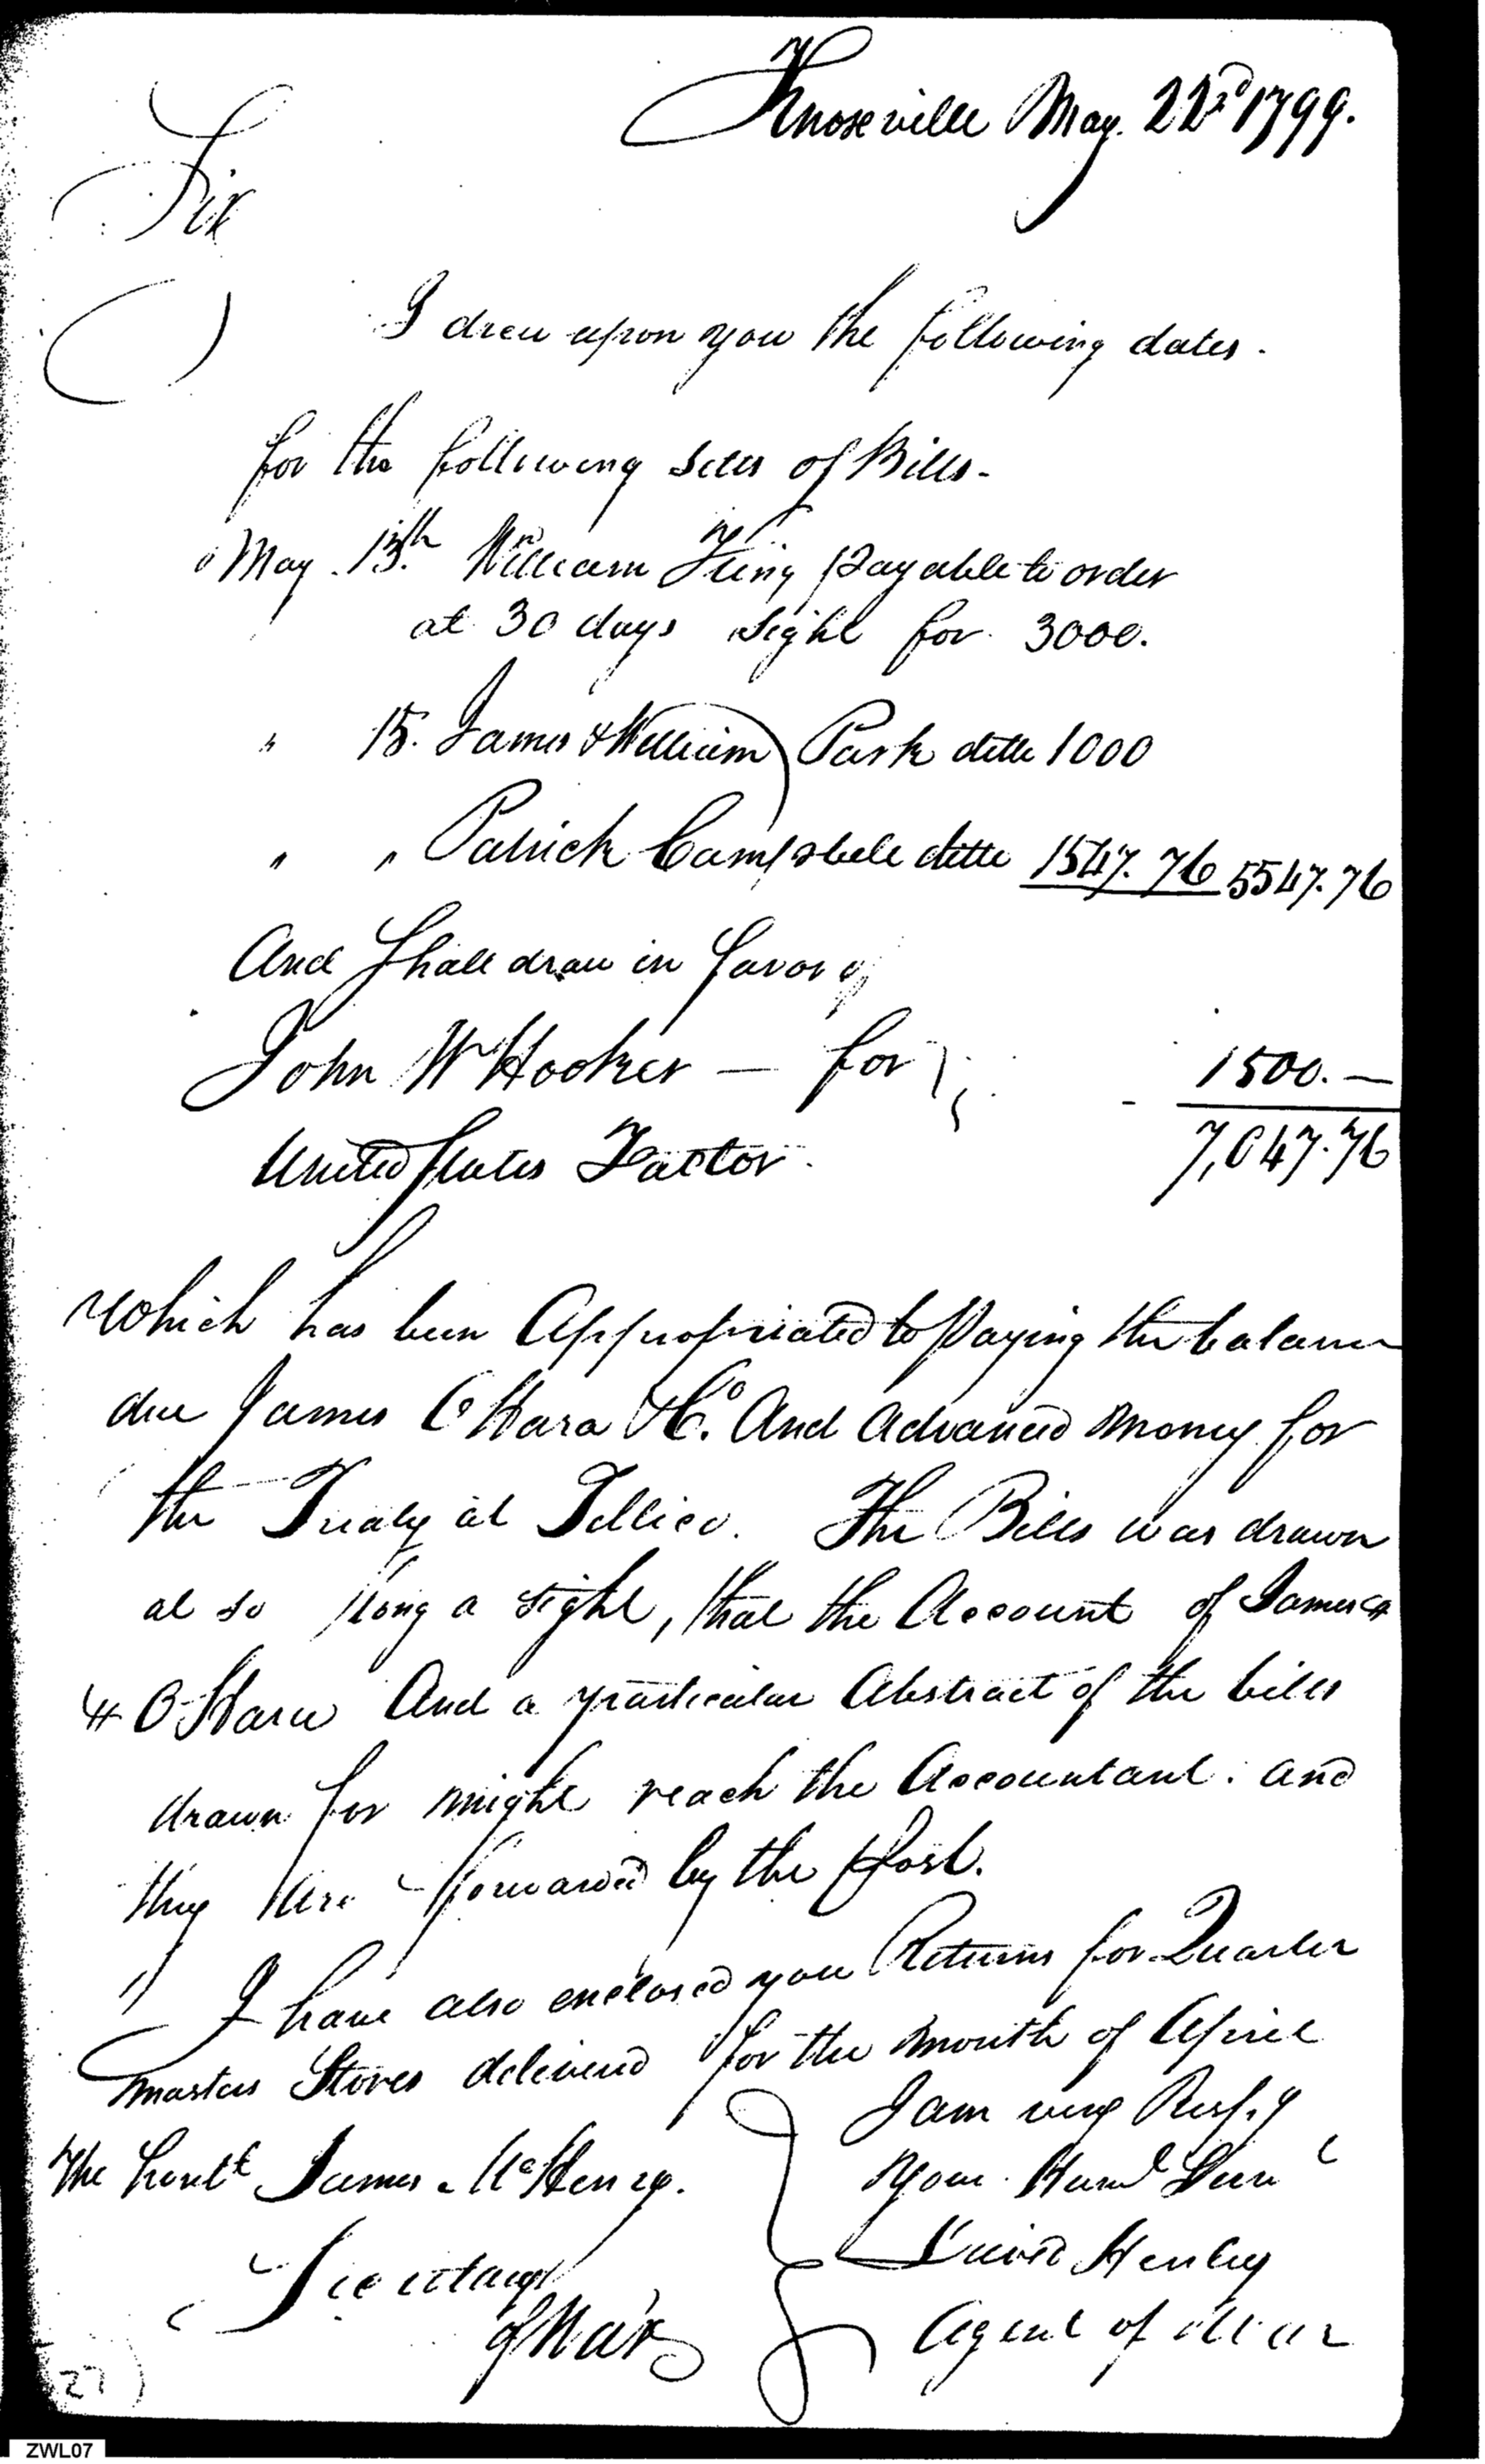 Knoxville May. 22d 1799.
Sir
I drew upon you the following dates.
for the following setts of Bills-
May. 13.th William King payable to order
at 30 days sight for 3000.
" 15. James & William Park ditto 1000
" " Patrick Campbell ditto 1547.76 5547.76
And shall draw in favor of
John W Hooker — for - 1500.—
United States Factor. 7,047.76
Which has been Appropriated to paying the balance
due James O Hara & Co. And advanced money for
the Treaty at Tellico. The Bills was drawn
at so long a sight, that the Account of James
O Hara And a particular Abstract of the bills
drawn for might reach the Accountant. and
they are forwarded by the post.
I have also enclosed you Returns for Quarter
masters Stores delivered for the month of April
I am very Resp.y
The Honble James McHenry. Your Humb Serv
David Henley
Secretary
of War Agent of War
27
ZWL07